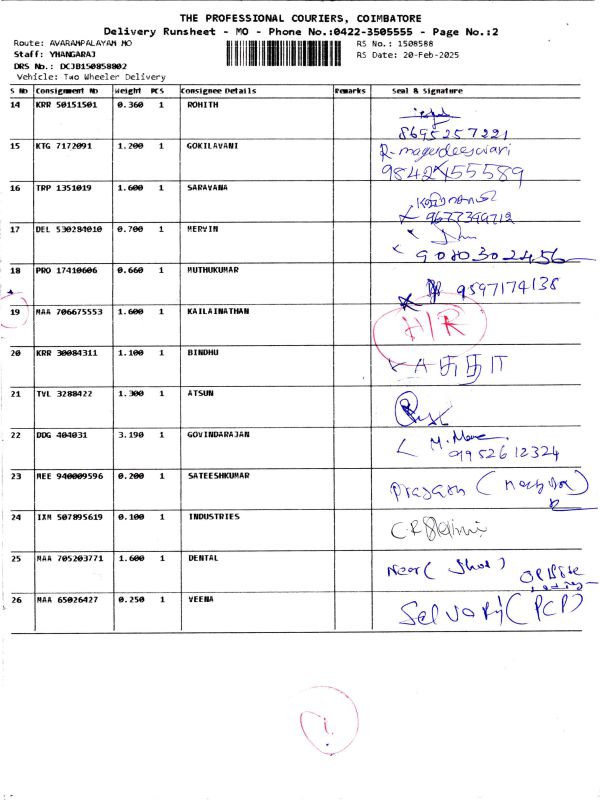 THE PROFESSIONAL COURIERS, COIMBATORE
Delivery Runsheet - MO - Phone No.:0422-3505555 - Page No.:2
Route: AVARAMPALAYAM MO
RS No.: 1508588
Staff: YHANGARAJ
RS Date: 20-Feb-2025
DRS No.: DCJB150858802
Vehicle: Two Wheeler Delivery
S No Consignment No Weight PCS Consignee Details Remarks Seal & Signature
14 KRR 50151501 0.360 1 ROHITH
8695257221
15 KTG 7172091 1.200 1 GOKILAVANI
R-magudeeswari
9842455589
16 TRP 1351019 1.600 1 SARAVANA
9677399712
17 DEL 530284010 0.700 1 MERVIN
9080302456
18 PRO 17410606 0.660 1 MUTHUKUMAR
9597174138
19 MAA 706675553 1.600 1 KAILAINATHAN
H/R
20 KRR 30084311 1.100 1 BINDHU
21 TVL 3288422 1.300 1 ATSUN
22 DDG 404031 3.190 1 GOVINDARAJAN
9952612324
23 MEE 940009596 0.200 1 SATEESHKUMAR
24 IXM 507895619 0.100 1 INDUSTRIES
25 MAA 705203771 1.600 1 DENTAL
26 MAA 65026427 0.250 1 VEENA
(PCP)